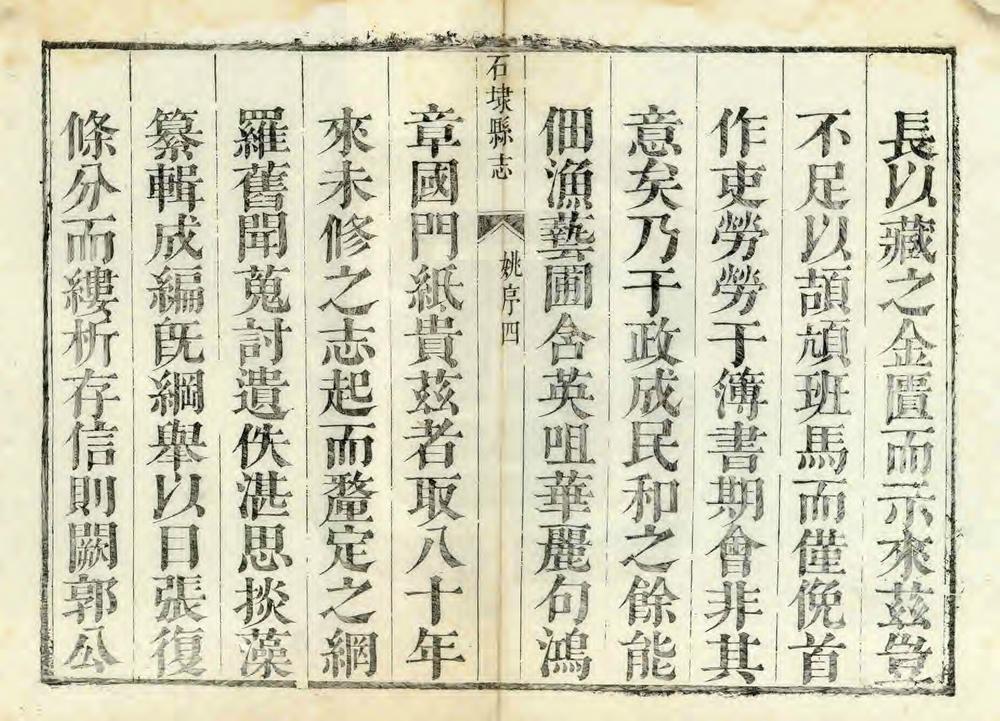 長以藏之金匱而示來茲豈
不足以頡頏班馬而僅俛首
作吏勞勞于簿書期會非其
意矣乃于政成民和之餘能
佃漁藝圃含英咀華麗句鴻
石埭縣志
姚序四
章國門紙貴茲者取八十年
來未修之志起而釐定之網
羅舊聞蒐討遺佚湛思掞藻
纂輯成編旣綱舉以目張復
條分而縷析存信則闕郭公